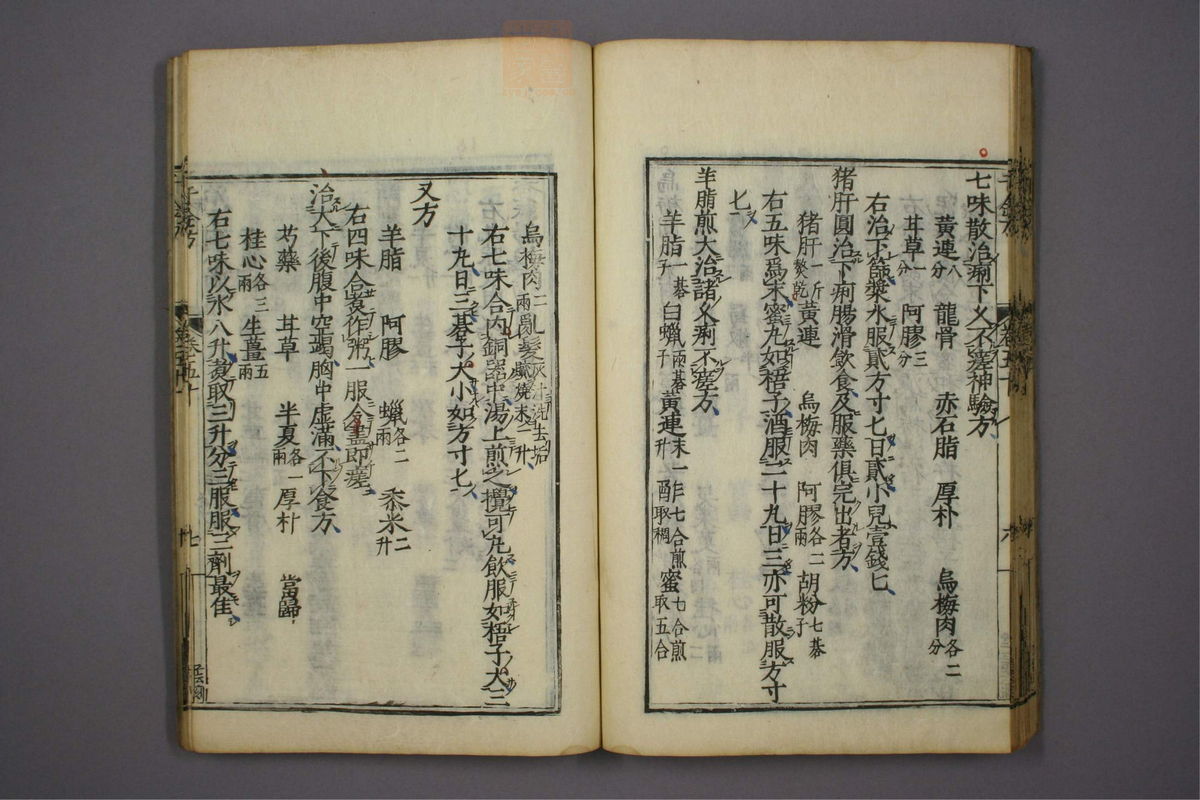 七味散治痢下久不瘥神驗方
黃連八分 龍骨 赤石脂 厚朴 烏梅肉各二分
耳草一分 阿膠三分
右治下簁漿水服貳方寸匕日貳小兒壹錢匕
猪肝圓治下痢腸滑飲食及服藥俱完出者方
猪肝一斤熬乾 黃連 烏梅肉 阿膠各二兩 胡粉七棊子
右五味爲末蜜丸如梧子酒服二十丸日三亦可散服方寸
匕
羊脂煎大治諸久痢不瘥方
羊脂一棊子 白蠟兩棊子 黃連末一升 酢七合煎取稠 蜜七合煎取五合
烏梅肉二兩 亂髮灰汁洗去垢燒末一升
右七味合內銅器中湯上煎之攪可丸飲服如梧子大三
十丸日三棊子大小如方寸匕
又方
羊脂 阿膠 蠟各二兩 黍米二升
右四味合煮作粥一服令盡即瘥
治大下後腹中空竭胸中虛滿不下食方
芍藥 耳草 半夏各一兩 厚朴 當歸
桂心各三兩 生薑五兩
右七味以水八升煮取三升分三服服三劑最佳